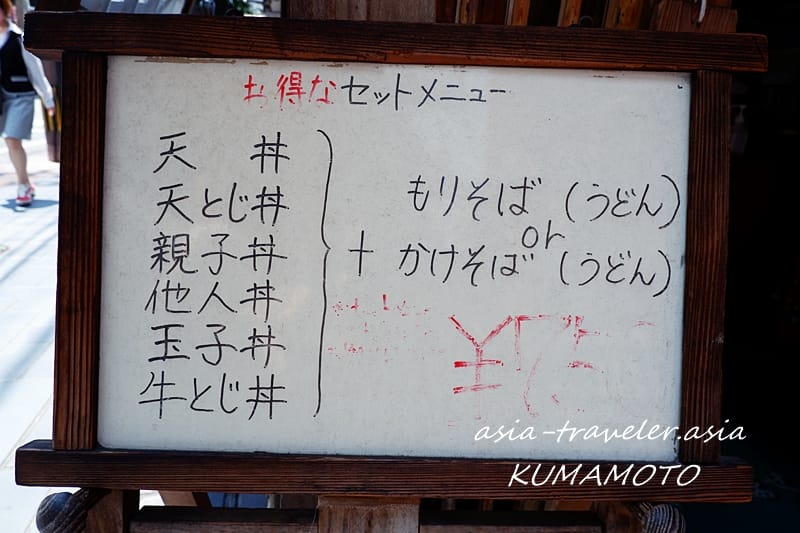 お得なセットメニュー
天 丼
天とじ丼
親子丼
他人丼
玉子丼
牛とじ丼
+
もりそば (うどん)
or
かけそば (うどん)
¥
asia-traveler.asia
KUMAMOTO